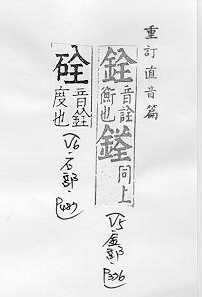 重訂直音篇
銓音詮衡也鐉同上
(V5·金部·P396)
硂音銓度也
(V6·石部·P487)